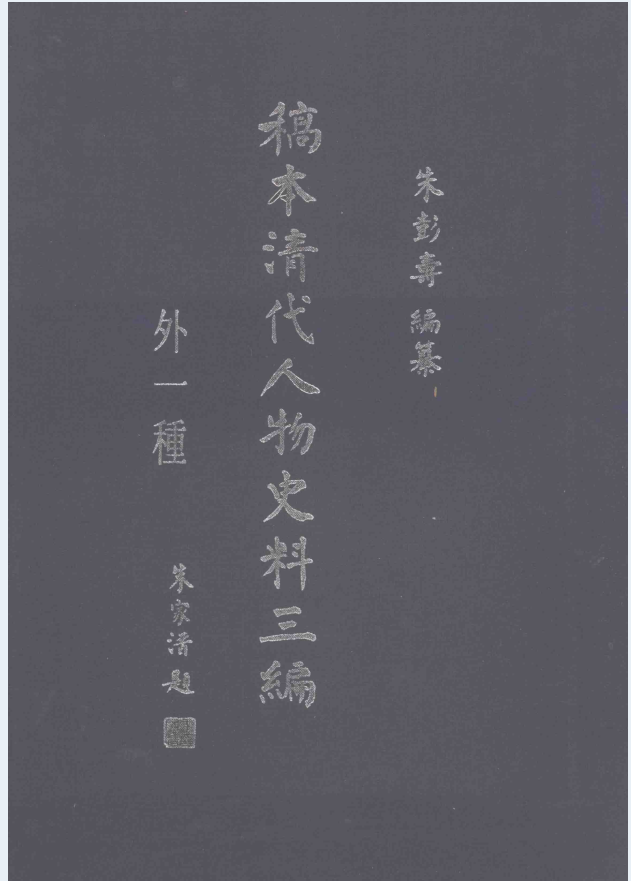 朱彭壽 編纂
稿本清代人物史料三編
外一種
朱家溍題